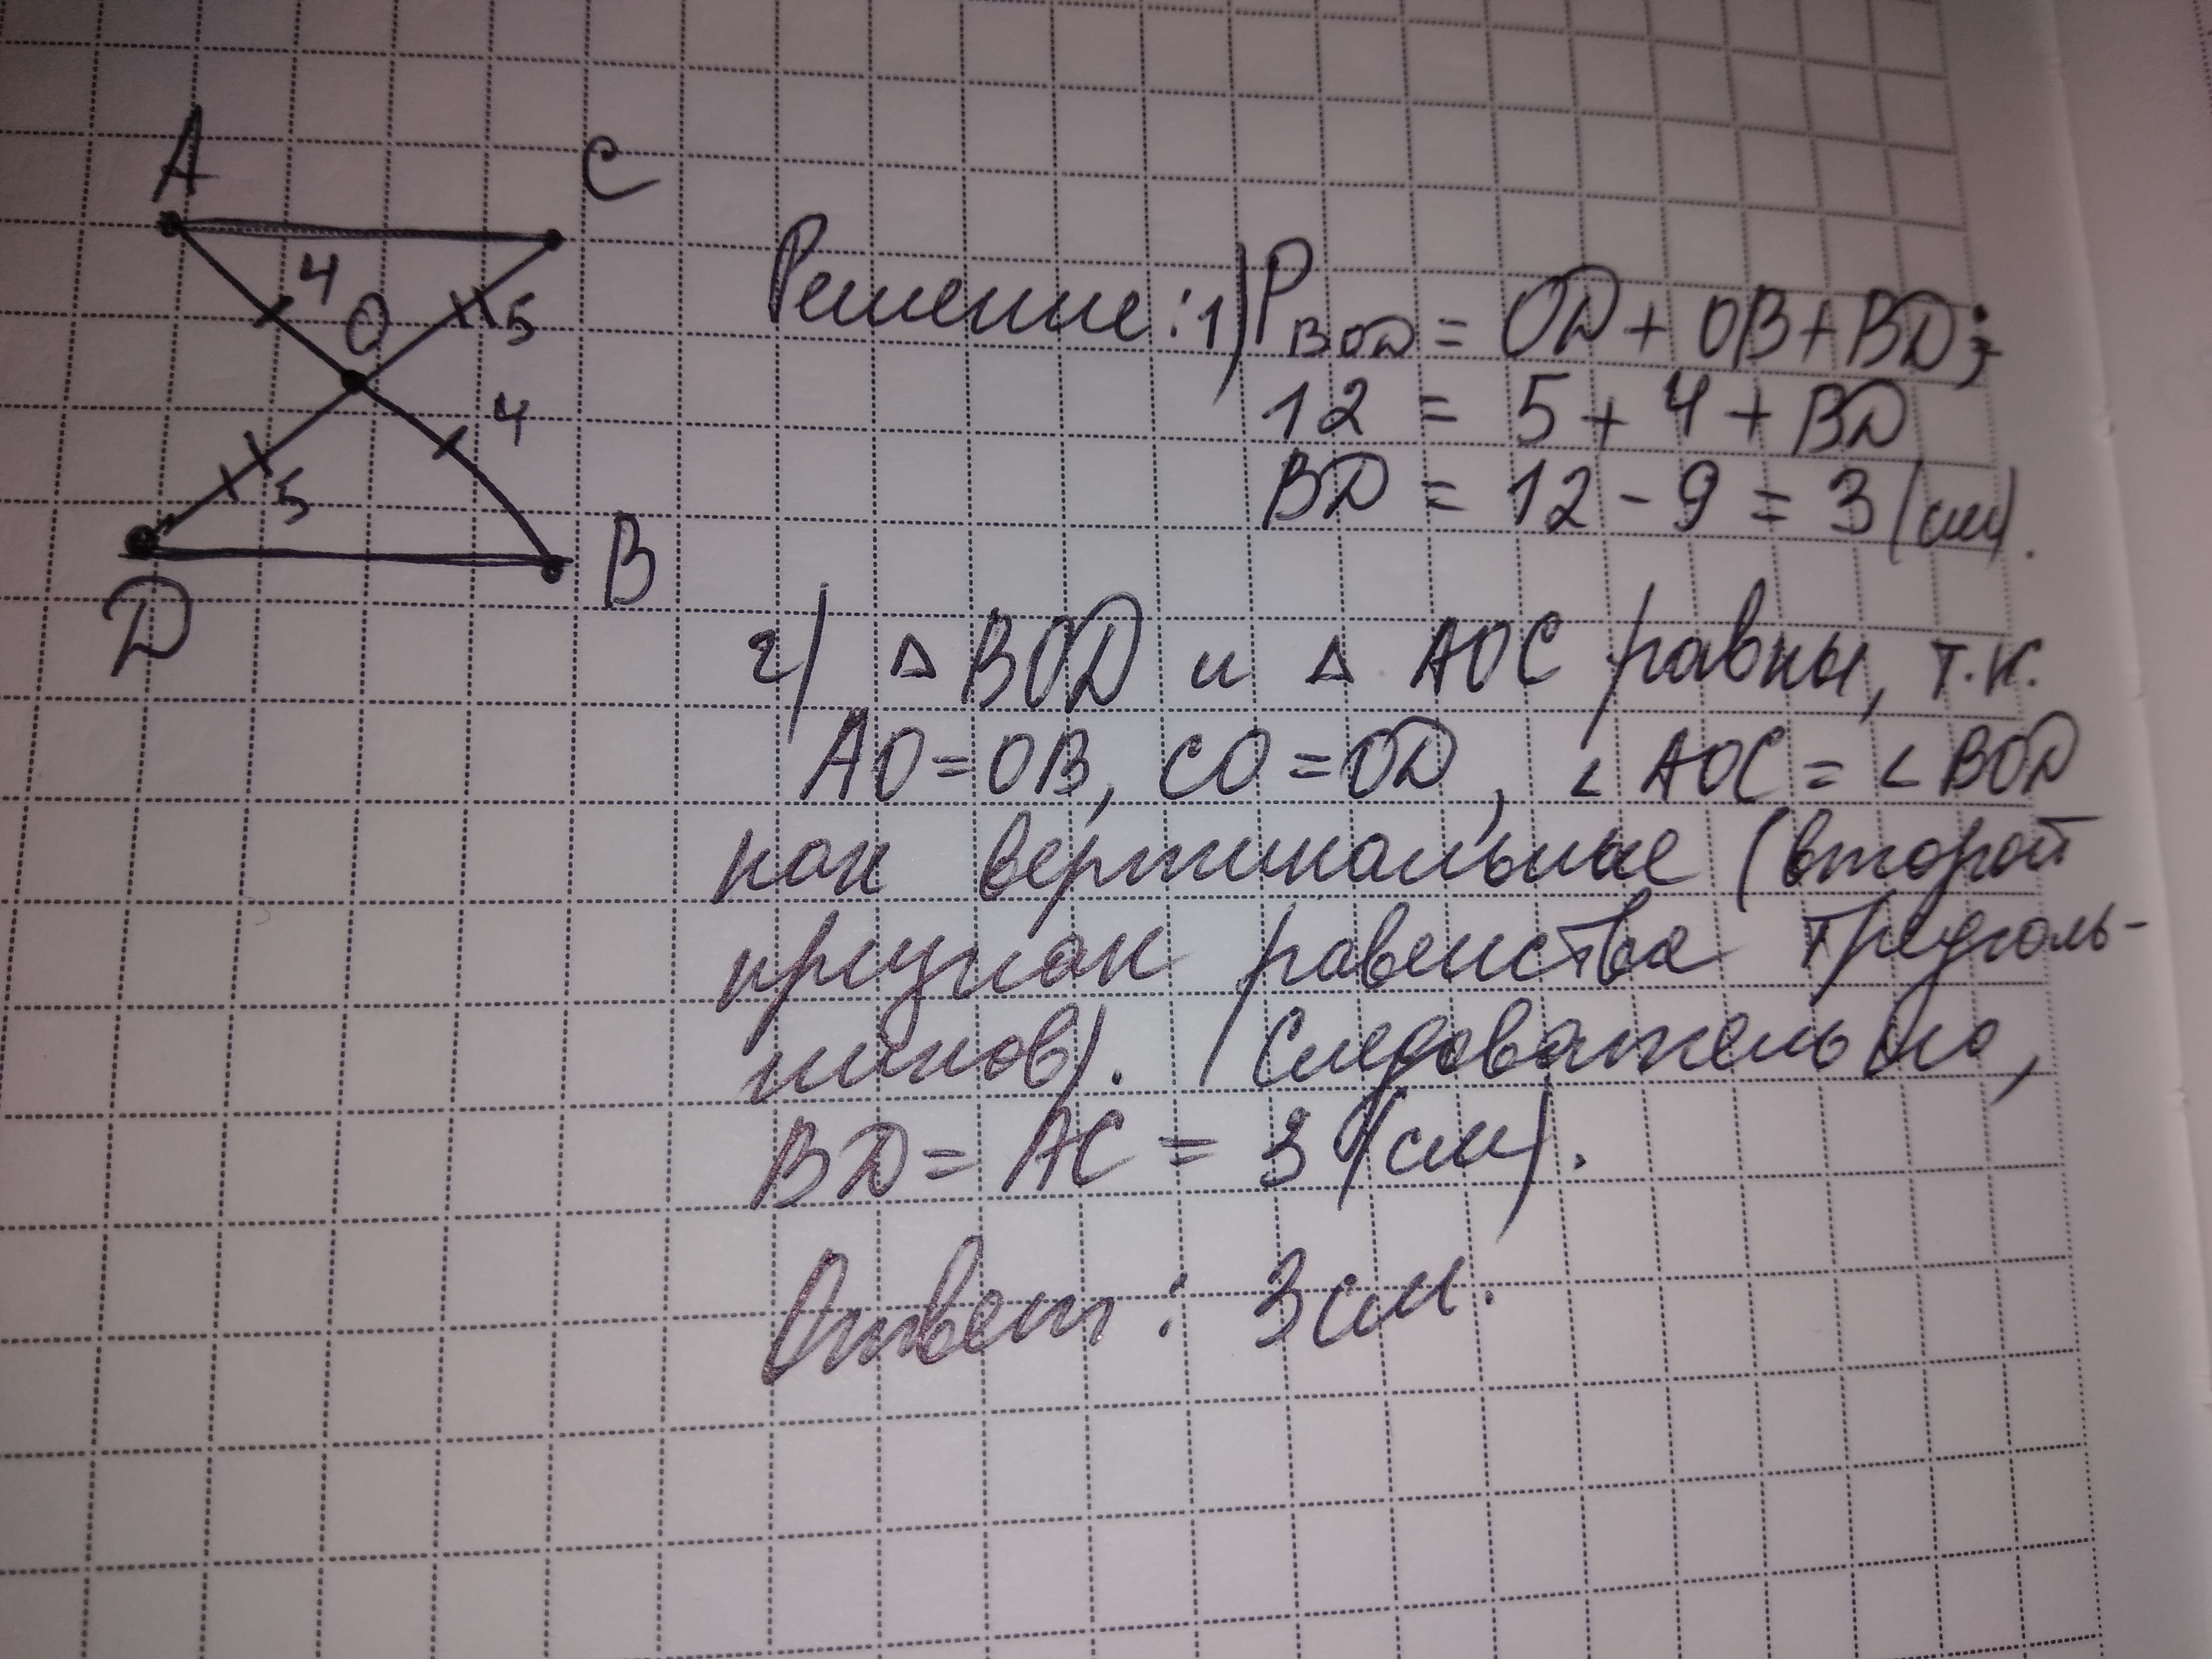 A
C
4
O
5
4
5
B
D
Решение: 1) P BOD = OD + OB + BD;
12 = 5 + 4 + BD
BD = 12 - 9 = 3 (см).
2) △ BOD и △ AOC равны, т.к.
AO = OB, CO = OD, ∠ AOC = ∠ BOD
как вертикальные (второй
признак равенства треуголь-
ников). Следовательно,
BD = AC = 3 (см).
Ответ: 3 см.